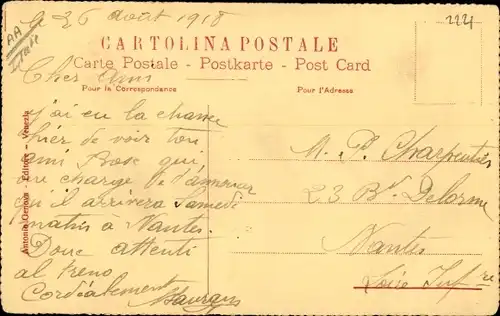 Le 26 août 1918
2221
CARTOLINA POSTALE
Carte Postale - Postkarte - Post Card
Pour la Correspondance
Pour l'Adresse
Cher Ami
j'ai eu la chance
hier de voir ton
ami Bosc qui
me charge de t'
qu'il arrivera Samedi
matin à Nantes.
Donc attenti
al treno
Cordialement
M. P. Charpentier
23 Bd Delorme
Nantes
Loire Infre
Antonio Genova - Editore - Venezia